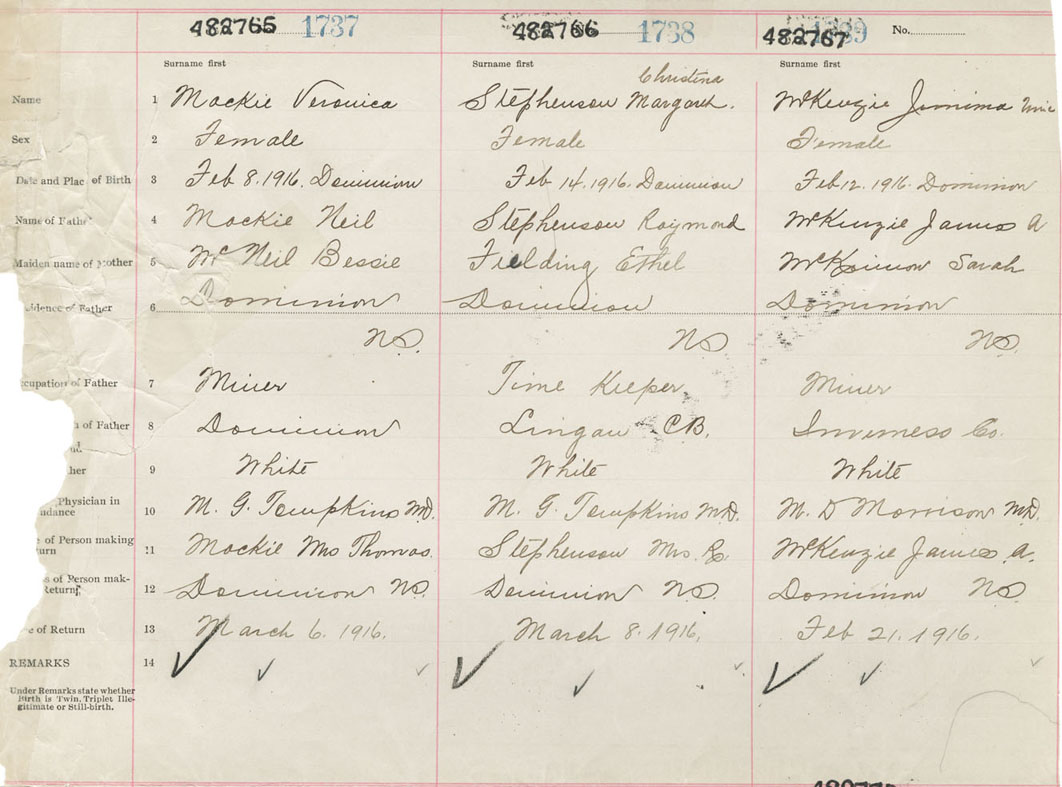 482765 1737 482766 1738 482767 No.
Surname first Surname first Surname first
Christina
Name 1 Mackie Veronica Stephenson Margaret. McKenzie Jemima
Sex 2 Female Female Female
Date and Plac of Birth 3 Feb 8. 1916. Dominion Feb 14. 1916. Dominion Feb 12. 1916. Dominion
Name of Fathe 4 Mackie Neil Stephenson Raymond McKenzie James A
Maiden name of Mother 5 McNeil Bessie Fielding Ethel McKinnon Sarah
idence of Father 6 Dominion Dominion Dominion
N.S. N.S N.S.
ccupation of Father 7 Miner Time Keeper Miner
of Father 8 Dominion Lingan C.B. Inverness Co.
nd
her 9 White White White
Physician in
ndance 10 M. G. Tompkins M.D. M. G. Tompkins M.D. M. D Morrison M.D.
e of Person making
turn 11 Mackie Mrs Thomas. Stephenson Mrs R. McKenzie James A.
s of Person mak-
Return 12 Dominion N.S. Dominion N.S. Dominion N.S
e of Return 13 March 6. 1916. March 8. 1916. Feb 21. 1916.
REMARKS 14
Under Remarks state whether
Birth is Twin, Triplet Ille-
gitimate or Still-birth.